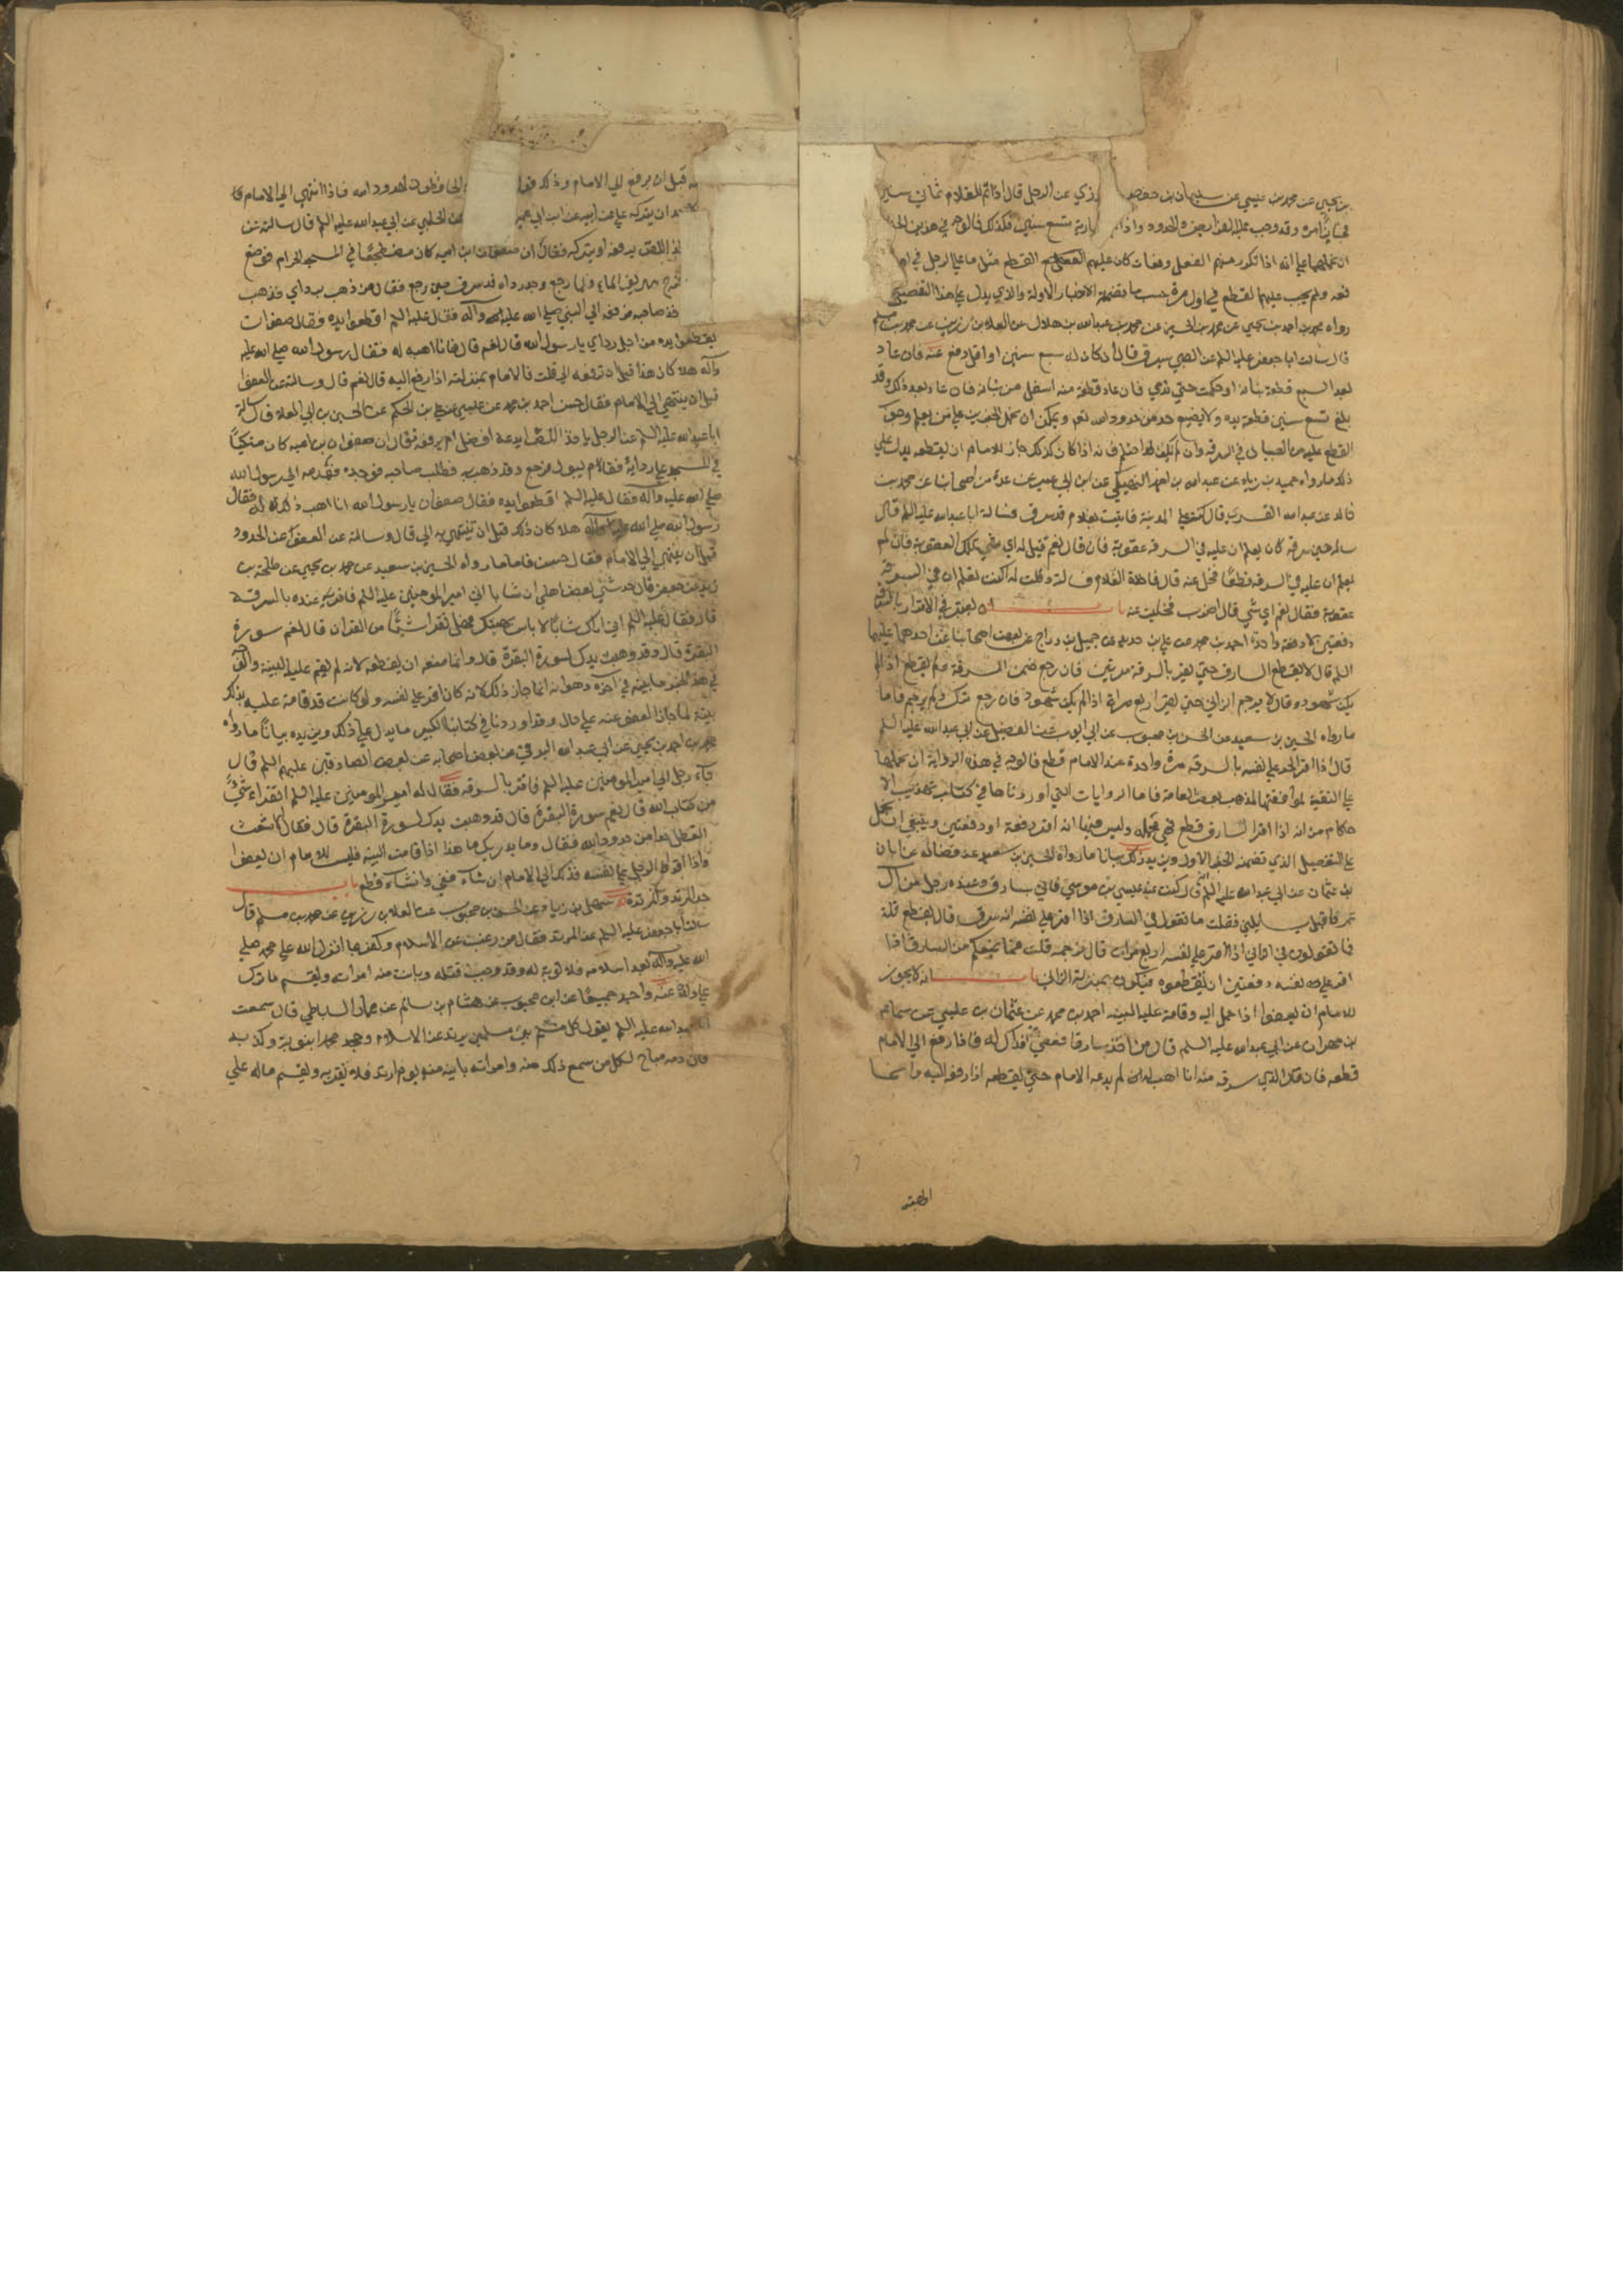 بن يحيي عن محمد بن عيسي عن سليمان بن حفص وزي عن الرجل قال اذا تم للغلام ثماني سنين
فجايز امره وقد وجب عليه الفرايض والحدود واذا تم ارية تسع سنين فكذلك فالوجه في هذين الخبر
ان نحملهما علي انه اذا تكرر منهم الفعل دفعات كان عليهم القطع مثل ما علي الرجل في او
دفعة ولم يجب عليهم القطع في اول مرة حسب ما تضمنته الاخبار الاولة والذي يدل علي هذا التفصيل
رواه محمد بن احمد بن يحيي عن محمد بن الحسين عن محمد بن عبد الله بن هلال عن العلا بن رزين عن محمد بن مسلم
قال سالت ابا جعفر عليه السلم عن الصبي يسرق قال ان كان له سبع سنين او اقل دفع عنه فان عاد
بعد السبع قطعت بنانه او حكت حتي تدمي فان عاد قطع منه اسفل من بنانه فان عاد بعد ذلك وقد
بلغ تسع سنين قطعت يده ولا يضيع حد من حدود الله نعم ويمكن ان نحمل الخبرين علي من يعلم وجوب
القطع عليه من الصبيان في السرقة وان لم يكن قد احتلم فانه اذا كان كذلك جاز للامام ان يقطعه يدل علي
ذلك ما رواه حميد بن زياد عن عبد الله بن احمد النهيكي عن ابن ابي عمير عن عدة من اصحابنا عن محمد بن
خالد بن عبد الله القسري قال كنت علي المدينة فاتيت بغلام قد سرق فسالت ابا عبد الله عليه السلم قال
سله حين سرق كان يعلم ان عليه في السرقة عقوبة فان قال نعم قيل له اي شي تلك العقوبة فان لم
يعلم ان عليه في السرقة قطعا فخل عنه قال فاخذت الغلام فسالته وقلت له اكنت تعلم ان في السرقة
عقوبة فقال نعم اي شي قال الضرب فخليت عنه باب انه يعتبر في الاقرار بالسرقة
دفعتين لا دفعة واحدة احمد بن محمد عن علي بن حديد عن جميل بن دراج عن بعض اصحابنا عن احدهما عليهما
السلم قال لا يقطع السارق حتي يقر بالسرقة مرتين فان رجع ضمن السرقة ولم يقطع اذا لم
يكن شهود وقال لا يرجم الزاني حتي يقر اربع مرات اذا لم يكن شهود فان رجع ترك ولم يرجم فاما
ما رواه الحسين بن سعيد عن الحسن بن محبوب عن ابي ايوب عن الفضيل عن ابي عبد الله عليه السلم
قال اذا اقر الحر علي نفسه بالسرقة مرة واحدة عند الامام قطع فالوجه في هذه الرواية ان نحملها
علي التقية لموافقتها لمذهب بعض العامة فاما الروايات التي اوردناها في كتاب تهذيب الا
حكام من انه اذا اقر السارق قطع فهي مجملة وليس فيها انه اقر دفعة او دفعتين وينبغي ان نحمل
علي التفصيل الذي تضمنه الخبر الاول ويزيد ذلك بيانا ما رواه الحسين بن سعيد عن فضالة عن ابان
بن عثمان عن ابي عبد الله عليه السلم قال كنت عند عيسي بن موسي فاتي بسارق وعنده رجل من ال
عمر فاقبل يسايلني فقلت ما تقول في السارق اذا اقر علي نفسه انه سرق قال يقطع قلت
فما تقولون في الزاني اذا اقر علي نفسه اربع مرات قال نرجمه قلت فما يمنعكم من السارق اذا
اقر علي نفسه دفعتين ان تقطعوه فيكون بمنزلة الزاني باب انه لا يجوز
للامام ان يعفوا اذا حمل اليه وقامت عليه البينه احمد بن محمد عن عثمان بن عيسي عن سماعة
بن مهران عن ابي عبد الله عليه السلم قال من اخذ سارقا فعفي فذاك له فاذا رفع الي الامام
قطعه فان قال الذي سرق منه انا اهب له لم يدعه الامام حتي يقطعه اذا رفع اليه وانما
الهبة
قبل ان يرفع الي الامام وذلك قول والحافظون لحدود الله فاذا انتهي الي الامام فلا
د ان يتركه علي عن ابيه عن ابن ابي عمير عن الحلبي عن ابي عبد الله عليه السلم قال سالته عن
اللص يرفعه او يتركه فقال ان صفوان ابن اميه كان مضطجعا في المسجد الحرام فوضع
خرج يهريق الماء فلما رجع وجد رداه قد سرق حين رجع فقال من ذهب بردائي فذهب
فاخذ صاحبه فرفعه الي النبي صلي الله عليه وآله فقال عليه السلم اقطعوا يده فقال صفوان
يقطع يده من اجل ردائي يا رسول الله قال نعم قال فانا اهبه له فقال رسول الله صلي الله عليه
وآله هلا كان هذا قبل ان ترفعه الي قلت فالامام بمنزلته اذا رفع اليه قال نعم قال وسالته عن العفو
قبل ان ينتهي الي الامام فقال حسن احمد بن محمد عن عيسي عن علي بن الحكم عن الحسين بن ابي العلا قال سالت
ابا عبد الله عليه السلم عن الرجل ياخذ اللص يدعه افضل ام يرفعه فقال ان صفوان بن اميه كان متكيا
في المسجد علي ردايه فقام يبول فرجع وقد ذهب به فطلب صاحبه فوجده فقدمه الي رسول الله
صلي الله عليه وآله فقال عليه السلم اقطعوا يده فقال صفوان يا رسول الله انا اهب ذلك له فقال
رسول الله صلي الله عليه وآله هلا كان ذلك قبل ان تنتهي به الي قال وسالته عن العفو عن الحدود
قبل ان ينتهي الي الامام فقال حسن فاما ما رواه الحسين بن سعيد عن محمد بن يحيي عن طلحة بن
زيد عن جعفر قال حدثني بعض اهلي ان شابا اتي امير المومنين عليه السلم فاقر عنده بالسرقة
قال فقال عليه السلم اني اراك شابا لا باس بهيئتك فهل تقرا شيئا من القران قال نعم سورة
البقرة قال فقد وهبت يدك لسورة البقرة قال وانما منعه ان يقطعه لانه لم يقم عليه البينة والوجه
في هذا الخبر ما بينه في آخره وهو انه انما جاز ذلك لانه كان اقر علي نفسه ولو كانت قد قامت عليه بذلك
بينة لما جاز العفو عنه علي حال وقد اوردنا في كتابنا الكبير ما يدل علي ذلك ويزيده بيانا ما رواه
محمد بن احمد بن يحيي عن ابي عبد الله البرقي عن بعض اصحابه عن بعض الصادقين عليهم السلم قال
جآء رجل الي امير المومنين عليه السلم فاقر بالسرقه فقال له امير المومنين عليه السلم اتقراء شيئا
من كتاب الله قال نعم سورة البقرة قال قد وهبت يدك لسورة البقرة قال فقال الاشعث
اتعطل حدا من حدود الله فقال وما يدريك ما هذا اذا قامت البينه فليس للامام ان يعفوا
واذا اقر الرجل علي نفسه فذلك الي الامام ان شآء عفي وان شآء قطع باب
حد المرتد والمرتدة سهل بن زياد عن الحسن بن محبوب عن العلا بن رزين عن محمد بن مسلم قال
سالت ابا جعفر عليه السلم عن المرتد فقال من رغب عن الاسلام وكفر بما انزل الله علي محمد صلي
الله عليه وآله بعد اسلامه فلا توبة له وقد وجب قتله وبانت منه امراته ويقسم ما ترك
علي ولده عنه واحمد جميعا عن ابن محبوب عن هشام بن سالم عن عمار الساباطي قال سمعت
ابا عبد الله عليه السلم يقول كل مسلم بين مسلمين يرتد عن الاسلام وجحد محمدا نبوته وكذبه
فان دمه مباح لكل من سمع ذلك منه وامراته باينه منه يوم ارتد فلا تقربه ويقسم ماله علي